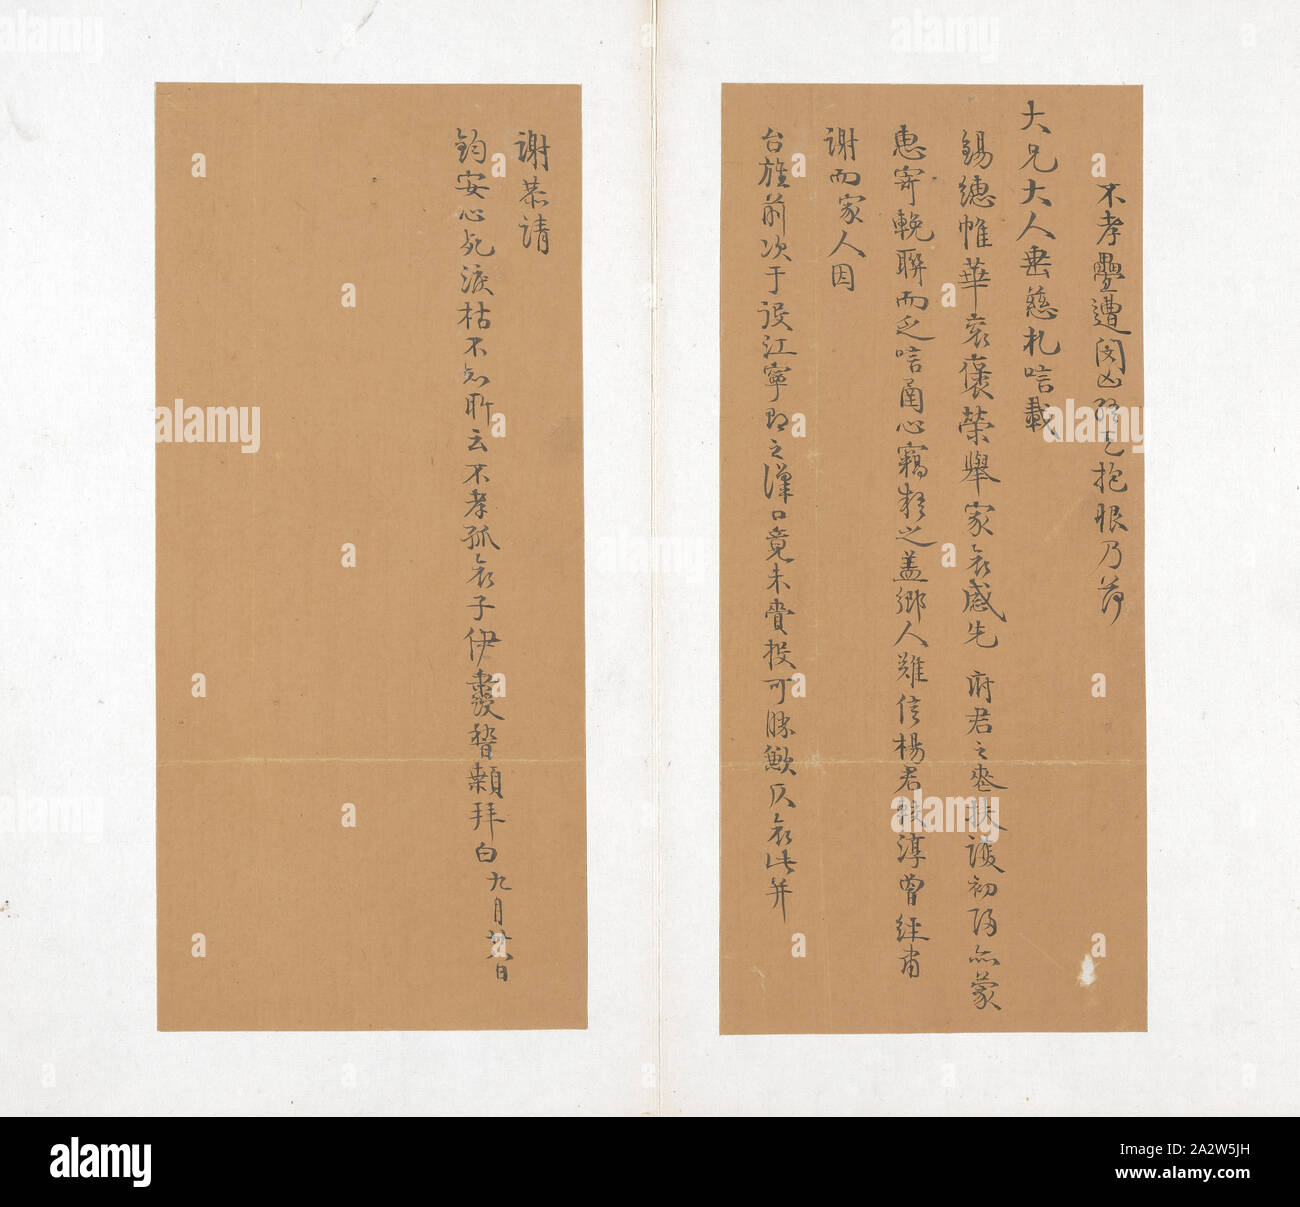 不孝疊遭閔凶終天抱恨乃荷
大兄大人垂慈札唁載
錫繐帷華袞褒榮舉家哀感先 府君之喪扶護初歸亦蒙
惠寄輓聯而之唁函心竊疑之蓋鄉人難信楊君筱淳曾經肅
謝而家人因
台旌前次于役江寧即之漢口竟未賫投可勝歉仄哀此并
謝恭請
鈞安心死淚枯不知所云不孝孤哀子伊 稽顙拜白九月廿八日
alamy
2A2W5JH
Image ID: 2A2W5JH
www.alamy.com